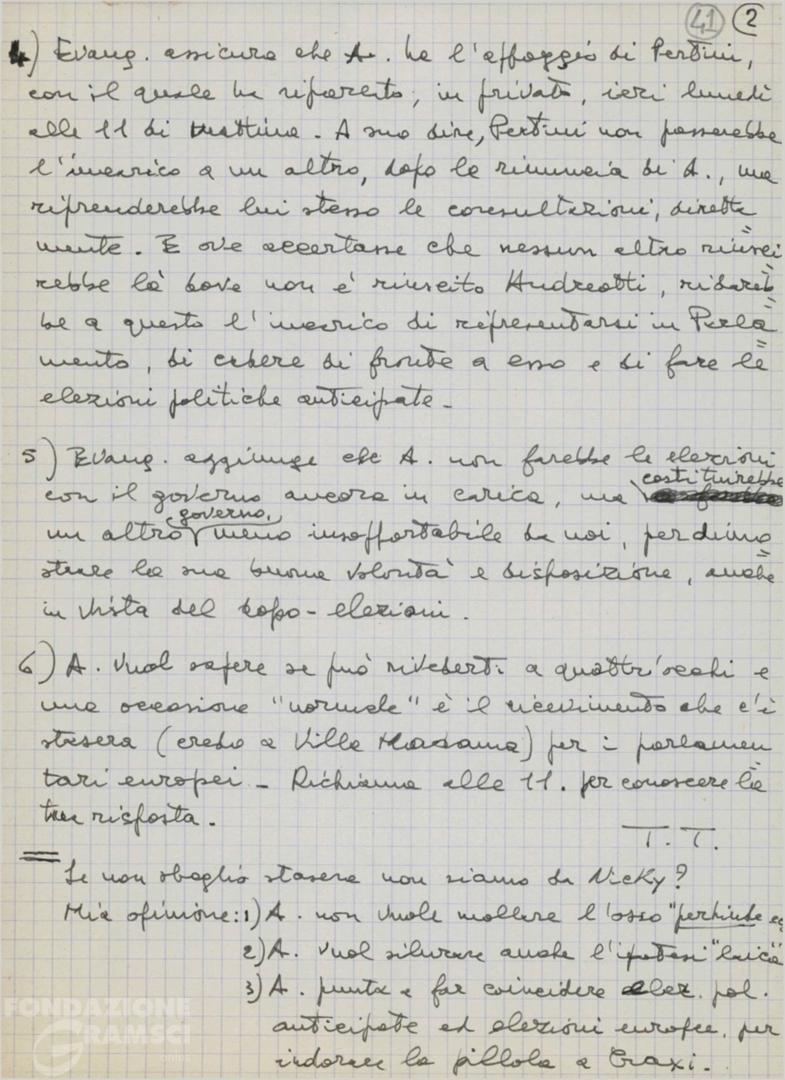 41 2
4) Evang. assicura che A. ha l'appoggio di Pertini,
con il quale ha riparlato, in privato, ieri lunedì
alle 11 di mattina. A suo dire, Pertini non passerebbe
l'incarico a un altro, dopo la rinuncia di A., ma
riprenderebbe lui stesso le consultazioni, diretta
mente. E ove accertasse che nessun altro riusci
rebbe là dove non è riuscito Andreotti, ridareb
be a questo l'incarico di ripresentarsi in Parla
mento, di cadere di fronte a esso e di fare le
elezioni politiche anticipate -
5) Evang. aggiunge che A. non farebbe le elezioni
con il governo ancora in carica, ma costituirebbe
un altro governo, meno insopportabile da noi, per dimo
strare la sua buona volontà e disposizione, anche
in vista del dopo-elezioni.
6) A. vuol sapere se può rivederti a quattr'occhi e
una occasione "normale" è il ricevimento che c'è
stasera (credo a Villa Madama) per i parlamen
tari europei - Richiama alle 11. per conoscere la
tua risposta.
T. T.
Se non sbaglio stasera non siamo da Nicky?
Mia opinione: 1) A. non vuole mollare l'osso "perinde
2) A. vuol silurare anche l'ipotesi "laica"
3) A. punta a far coincidere elez. pol.
anticipate ed elezioni europee, per
indorare la pillola a Craxi.
FONDAZIONE
GRAMSCI